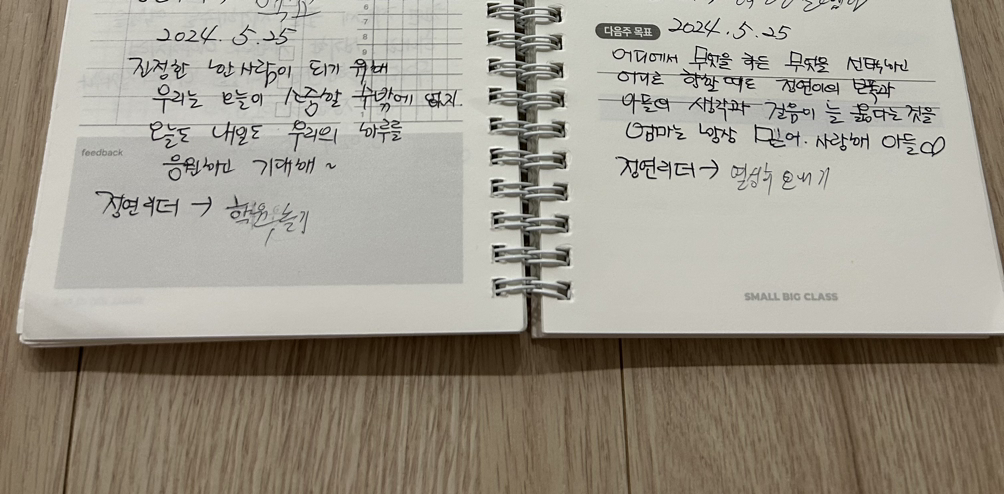 2024. 5. 25
진정한 한사람이 되기 위해
우리는 오늘이 소중할 수밖에 없지.
오늘도 내일도 우리의 하루를
feedback
응원하고 기대해~
정연리더 →
6
7
8
9
다음주 목표
2024. 5. 25
어디에서 무엇을 하든 무엇을 선택하고
어디로 향할 때도 정연이의 보폭과
아들의 생각과 걸음이 늘 옳다는 것을
엄마는 항상 믿어. 사랑해 아들
정연리더 → 보내기
SMALL BIG CLASS